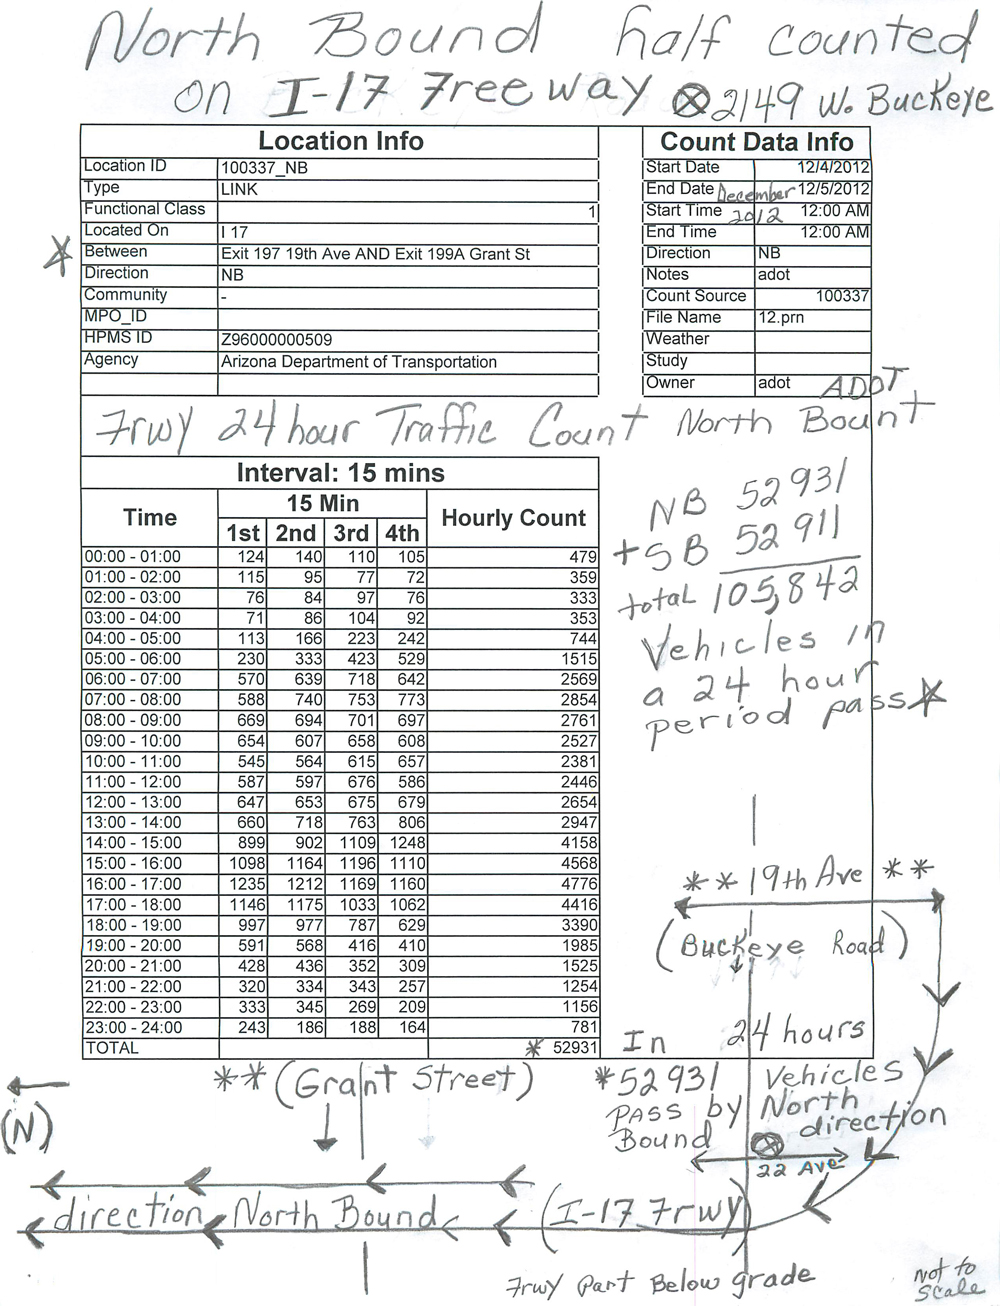 North Bound half counted
on I-17 Freeway ⊗ 2149 W. Buckeye
Location Info
Location ID 100337_NB
Type LINK
Functional Class 1
Located On I 17
* Between Exit 197 19th Ave AND Exit 199A Grant St
Direction NB
Community -
MPO_ID
HPMS ID Z96000000509
Agency Arizona Department of Transportation
Count Data Info
Start Date 12/4/2012
End Date December 12/5/2012
Start Time 2012 12:00 AM
End Time 12:00 AM
Direction NB
Notes adot
Count Source 100337
File Name 12.prn
Weather
Study
Owner adot ADOT
Frwy 24 hour Traffic Count North Bount
Interval: 15 mins
Time 15 Min Hourly Count
1st 2nd 3rd 4th
00:00 - 01:00 124 140 110 105 479
01:00 - 02:00 115 95 77 72 359
02:00 - 03:00 76 84 97 76 333
03:00 - 04:00 71 86 104 92 353
04:00 - 05:00 113 166 223 242 744
05:00 - 06:00 230 333 423 529 1515
06:00 - 07:00 570 639 718 642 2569
07:00 - 08:00 588 740 753 773 2854
08:00 - 09:00 669 694 701 697 2761
09:00 - 10:00 654 607 658 608 2527
10:00 - 11:00 545 564 615 657 2381
11:00 - 12:00 587 597 676 586 2446
12:00 - 13:00 647 653 675 679 2654
13:00 - 14:00 660 718 763 806 2947
14:00 - 15:00 899 902 1109 1248 4158
15:00 - 16:00 1098 1164 1196 1110 4568
16:00 - 17:00 1235 1212 1169 1160 4776
17:00 - 18:00 1146 1175 1033 1062 4416
18:00 - 19:00 997 977 787 629 3390
19:00 - 20:00 591 568 416 410 1985
20:00 - 21:00 428 436 352 309 1525
21:00 - 22:00 320 334 343 257 1254
22:00 - 23:00 333 345 269 209 1156
23:00 - 24:00 243 186 188 164 781
TOTAL * 52931
NB 52931
+ SB 52911
total 105,842
Vehicles in
a 24 hour
period pass *
** 19th Ave **
(Buckeye Road)
In 24 hours
*52931 Vehicles
Pass by North
Bound direction
22 Ave
** (Grant Street)
(N)
direction North Bound (I-17 Frwy)
Frwy Part Below grade
Not to
Scale